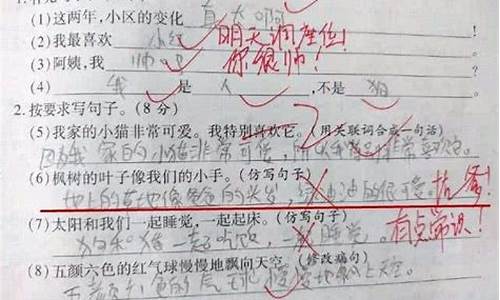 (1)这两年,小区的变化 真大啊
(2)我最喜欢 小红 明天调座位!
(3)阿姨,我 帅吧 你很帅!
(4) 我 是 人 ,不是 狗
2.按要求写句子。(8分)
(5)我家的小猫非常可爱。我特别喜欢它。(用关联词合成一句话)
因为我家的小猫非常可爱,所以我 非常喜欢它。
(6)枫树的叶子像我们的小手。(仿写句子)
地上的草地像爸爸的头发,绿油油的很可爱。抗爹!
(7)太阳和我们一起睡觉,一起起床。(仿写句子)
狗和猪一起吃饭,一起睡觉。 有点常识!
(8)五颜六色的红气球慢慢地飘向天空。(修改病句)
五颜六色的气球慢慢地飘上天空。